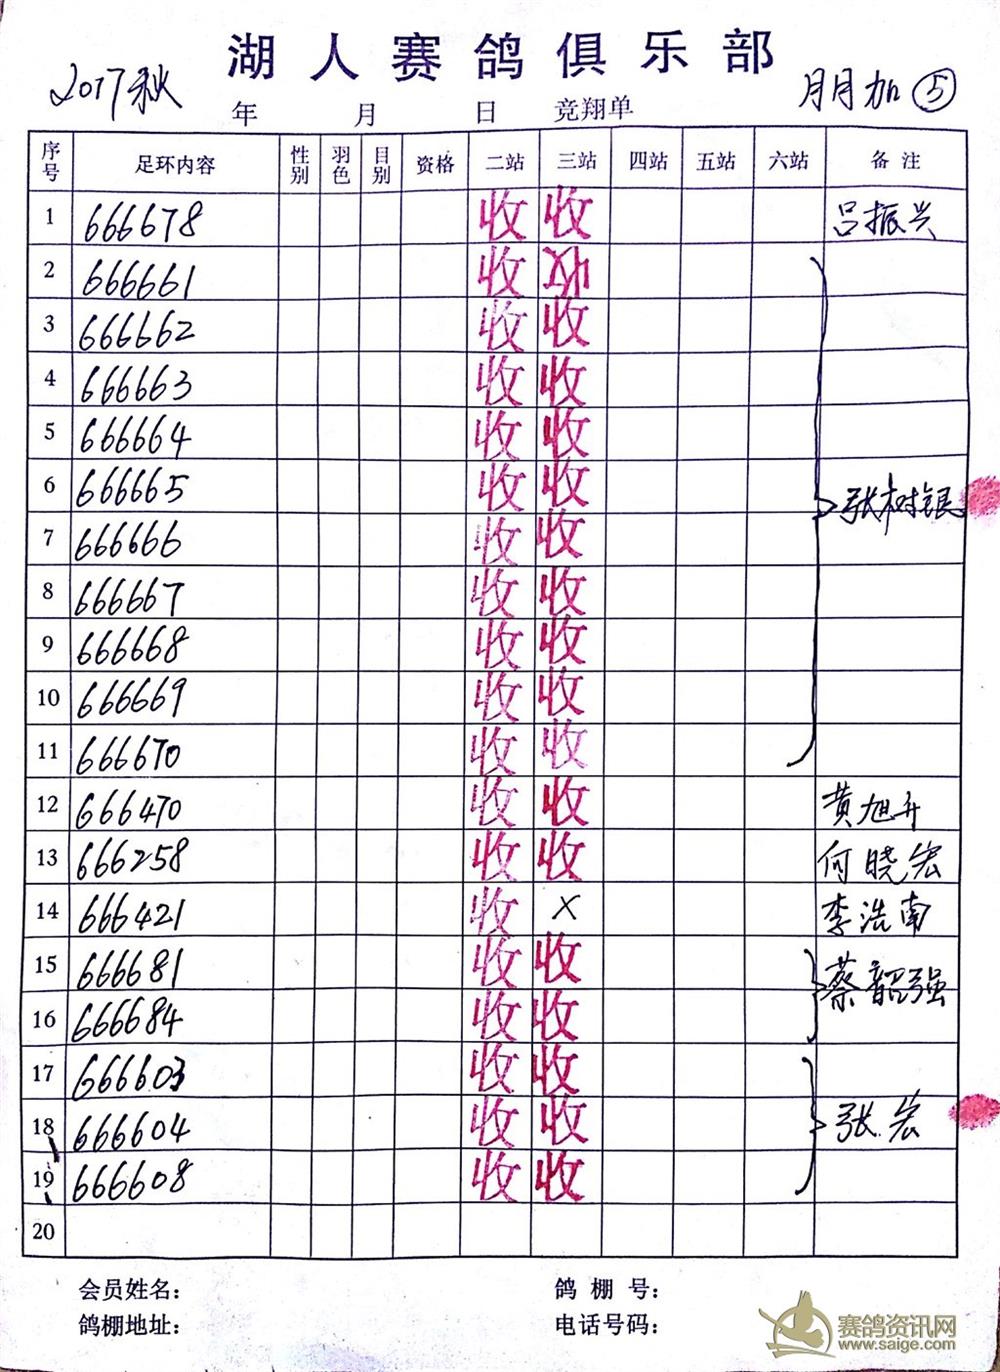 湖人赛鸽俱乐部
2017秋 年 月 日 竞翔单 月月加⑤
序号 足环内容 性别 羽色 目别 资格 二站 三站 四站 五站 六站 备注
1 666678 收 收 吕振兴
2 666661 收
3 666662 收 收
4 666663 收 收
5 666664 收 收
6 666665 收 收 张树银
7 666666 收 收
8 666667 收 收
9 666668 收 收
10 666669 收 收
11 666670 收 收
12 666470 收 收 黄旭升
13 666258 收 收 何晓宏
14 666421 收 X 李浩南
15 666681 收 收 蔡韶强
16 666684 收 收
17 666603 收 收
18 666604 收 收 张宏
19 666608 收 收
20
会员姓名： 鸽棚号：
鸽棚地址： 电话号码：
赛鸽资讯网
www.saige.com